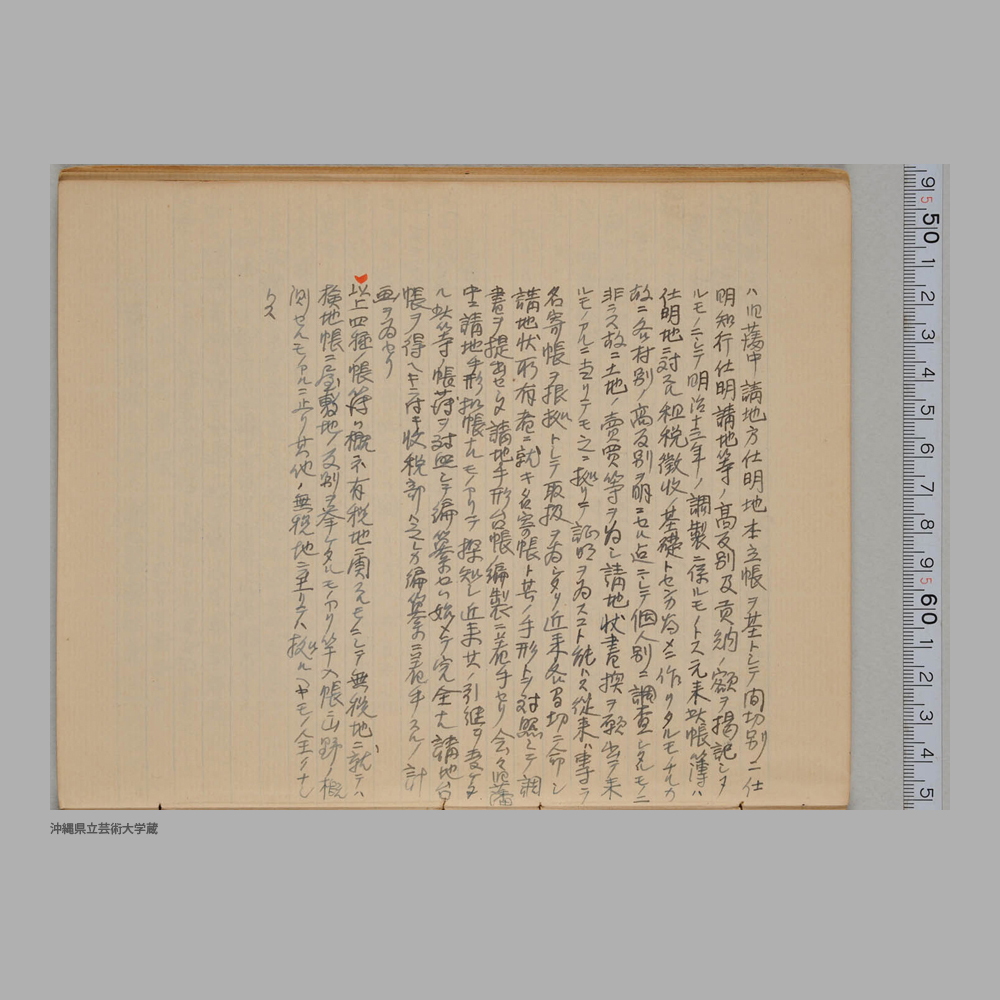 ハ旧藩中請地方仕明地本立帳ヲ基トシテ間切別ニ仕
明知行仕明請地等ノ高反別及貢納ノ額ヲ掲記シタ
ルモノニシテ明治十三年ノ調製ニ係ルモノトス元来此帳簿ハ
仕明地ニ対スル租税徴収ノ基礎トセンカ為メニ作リタルモノナルカ
故ニ各村別ノ高反別ヲ明ニセル迄ニシテ個人別ニ調査シタルモノニ
非ラス故ニ土地ノ売買等ヲ為シ請地状書換ヲ願出テ来
ルモノアルニ当リテモ之ニ拠リテ証明ヲ為スコト能ハス従来ハ専ラ
名寄帳ヲ根拠トシテ取扱ヲ為シタリ近来各間切ニ命シ
請地状所有者ニ就キ名寄帳ト其ノ手形トヲ対照シテ調
書ヲ提出セシメ請地手形台帳編製ニ着手セリ会々旧藩
中ニ請地手形扣帳ナルモノアリテ探知シ近来其ノ引継ヲ受ケタ
ル此等ノ帳簿ヲ対照シテ編纂セハ始メテ完全ナル請地台
帳ヲ得ヘキニ付キ収税部ハ今シカ編纂ニ着手スルノ計
画ヲ為セリ
以上四種ノ帳簿ハ概ネ有税地ニ関スルモノニシテ無税地ニ就テハ
検地帳ニ屋敷地ノ反別ヲ挙ケタルモノアリ竿入帳ニ山野ノ概
測セルモノアルニ止リ其他ノ無税地ニ至リテハ拠ルヘキモノ全クナシ
トス
9 50 1 2 3 4 5 6 7 8 9 60 1 2 3 4 5
沖縄県立芸術大学蔵